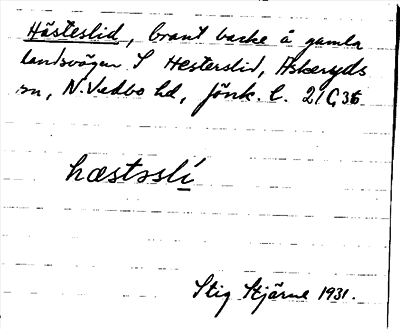 Hästeslid, brant backe å gamla
landsvägen S Hesterslid, Askeryds
sn, N. Vedbo hd, Jönk. l. 21/6, 35
hæstəslí
Stig Stjärne 1931.